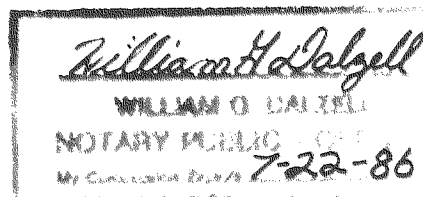 William G Dalzell
WILLIAM G DALZELL
NOTARY PUBLIC
My Commission 7-22-86